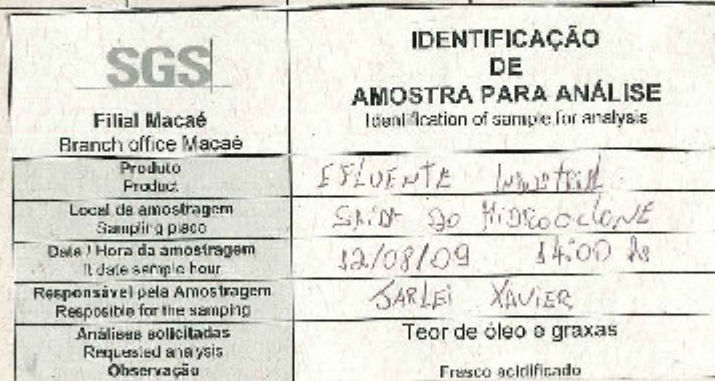 SGS
Filial Macaé
Branch office Macaé
IDENTIFICAÇÃO
DE
AMOSTRA PARA ANÁLISE
Identification of sample for analysis
Produto
Product
EFLUENTE INDUSTRIAL
Local de amostragem
Sampling place
SAIDA DO HIDROCICLONE
Data / Hora da amostragem
It date sample hour
12/08/09 14:00 hs
Responsável pela Amostragem
Resposible for the sampling
JARLEI XAVIER
Análises solicitadas
Requested analysis
Teor de óleo e graxas
Observação
Frasco acidificado